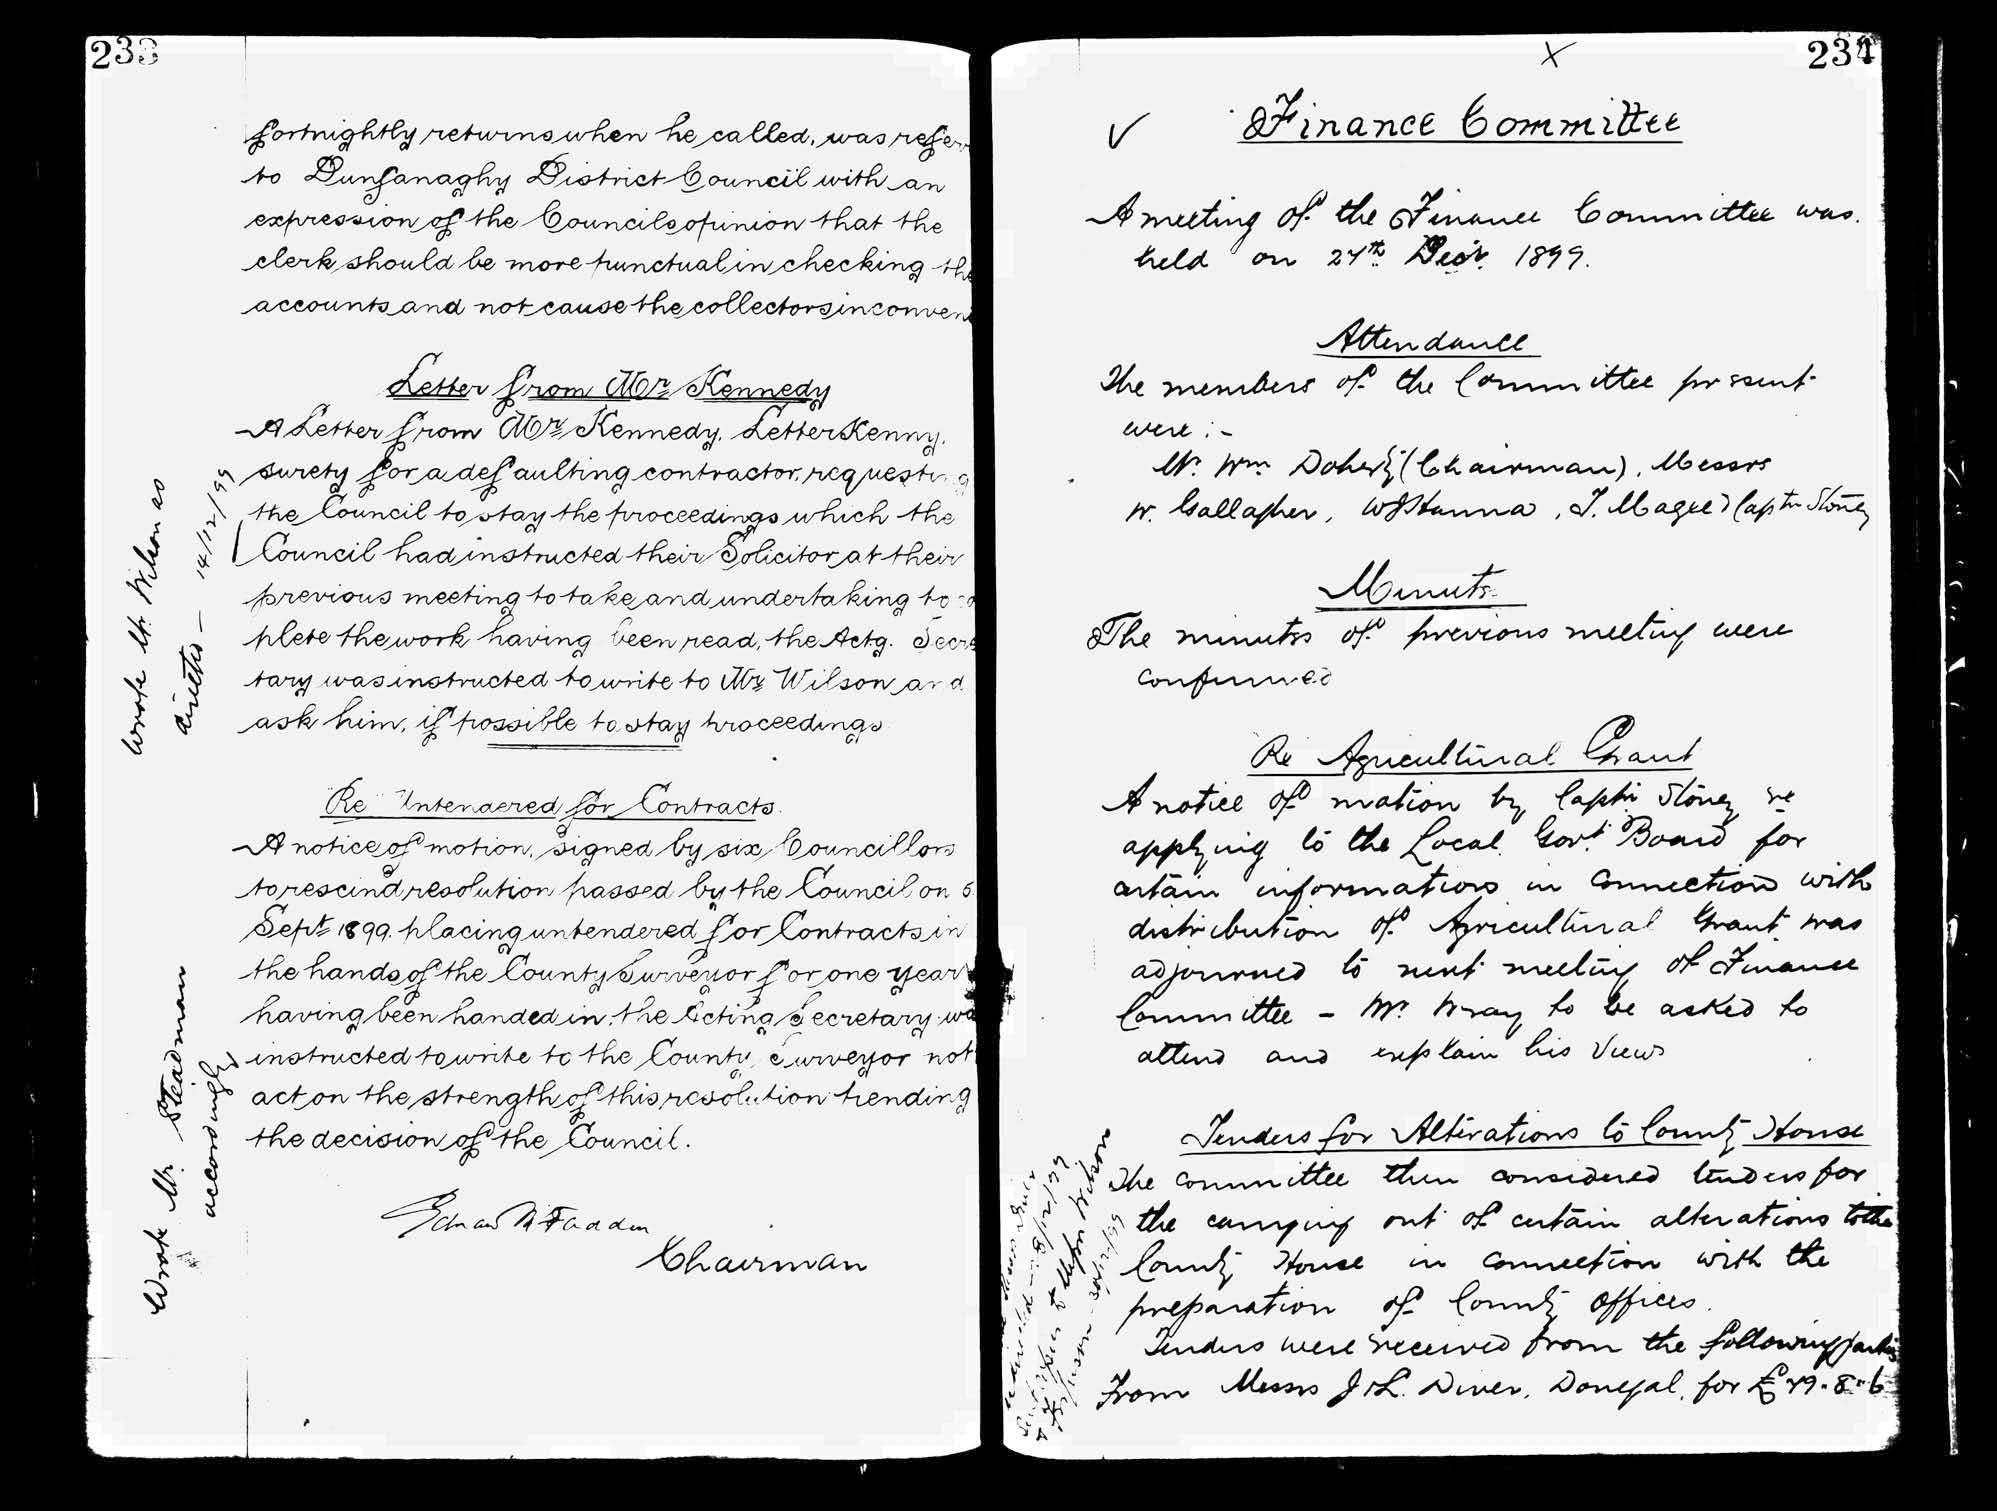 233
fortnightly returns when he called, was refer
to Dunfanaghy District Council with an
expression of the Councils opinion that the
clerk should be more punctual in checking the
accounts and not cause the collectors inconven
Letter from Mr Kennedy
A Letter from Mr Kennedy, Letterkenny,
surety for a defaulting contractor, requesting
the Council to stay the proceedings which the
Council had instructed their Solicitor at their
previous meeting to take and undertaking to
plete the work having been read, the Actg. Secre
tary was instructed to write to Mr Wilson and
ask him, if possible to stay proceedings
Wrote Mr. Wilson as
directed — 14/12/99
Re Untendered for Contracts.
A notice of motion, signed by six Councillors
to rescind resolution passed by the Council on 5
Sept 1899. placing untendered for Contracts in
the hands of the County Surveyor for one year
having been handed in, the Acting Secretary was
instructed to write to the County Surveyor not
act on the strength of this resolution pending
the decision of the Council.
Wrote Mr. Steadman
accordingly
Edward McFadden
Chairman
234
X
✓ Finance Committee
A meeting of the Finance Committee was
held on 27th Decr. 1899.
Attendance
The members of the Committee present
were :-
Mr. Wm. Doherty (Chairman), Messrs
W. Gallagher, WJ Hanna, J. Magee & Captn Stoney
Minutes
The minutes of previous meeting were
confirmed
Re Agricultural Grant
A notice of motion by Captn Stoney re
applying to the Local Govt. Board for
certain informations in connection with
distribution of Agricultural Grant was
adjourned to next meeting of Finance
Committee - Mr. Wray to be asked to
attend and explain his views
Tenders for Alterations to County House
The committee then considered tenders for
the carrying out of certain alterations to the
County House in connection with the
preparation of County Offices.
Tenders were received from the following parties
From Messrs J & L. Diver, Donegal, for £ 79-8-6